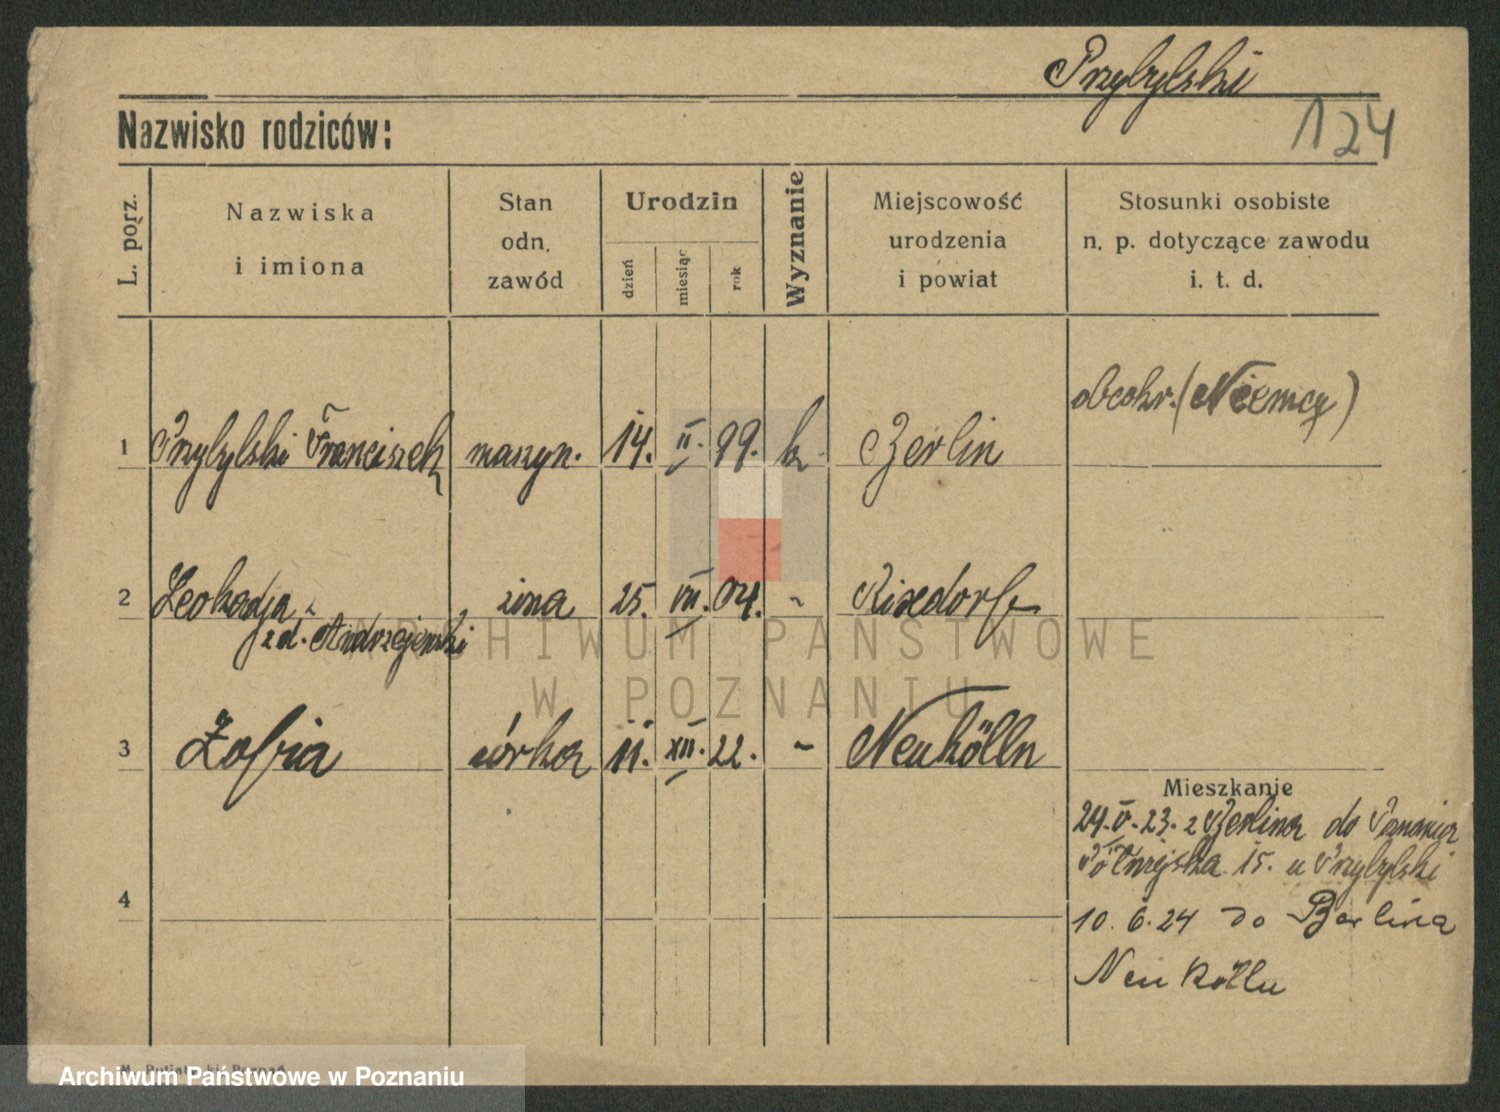 Przybylski
124
Nazwisko rodziców:
L. porz.
Nazwiska
i imiona
Stan
odn.
zawód
Urodzin
dzień
miesiąc
rok
Wyznanie
Miejscowość
urodzenia
i powiat
Stosunki osobiste
n. p. dotyczące zawodu
i. t. d.
obcokr. (Niemcy)
1 Przybylski Franciszek maszyn. 14. II. 99. k Berlin
2 Leokadja żona 25. VII. 04. - Rixdorf
z d. Andrzejewski
3 Zofia córka 11. XII. 22. - Neukölln
Mieszkanie
24.V.23. z Berlina do Poznania
15. u Przybylski
4
10.6.24 do Berlina
Neukölln
ARCHIWUM PAŃSTWOWE
W POZNANIU
Archiwum Państwowe w Poznaniu